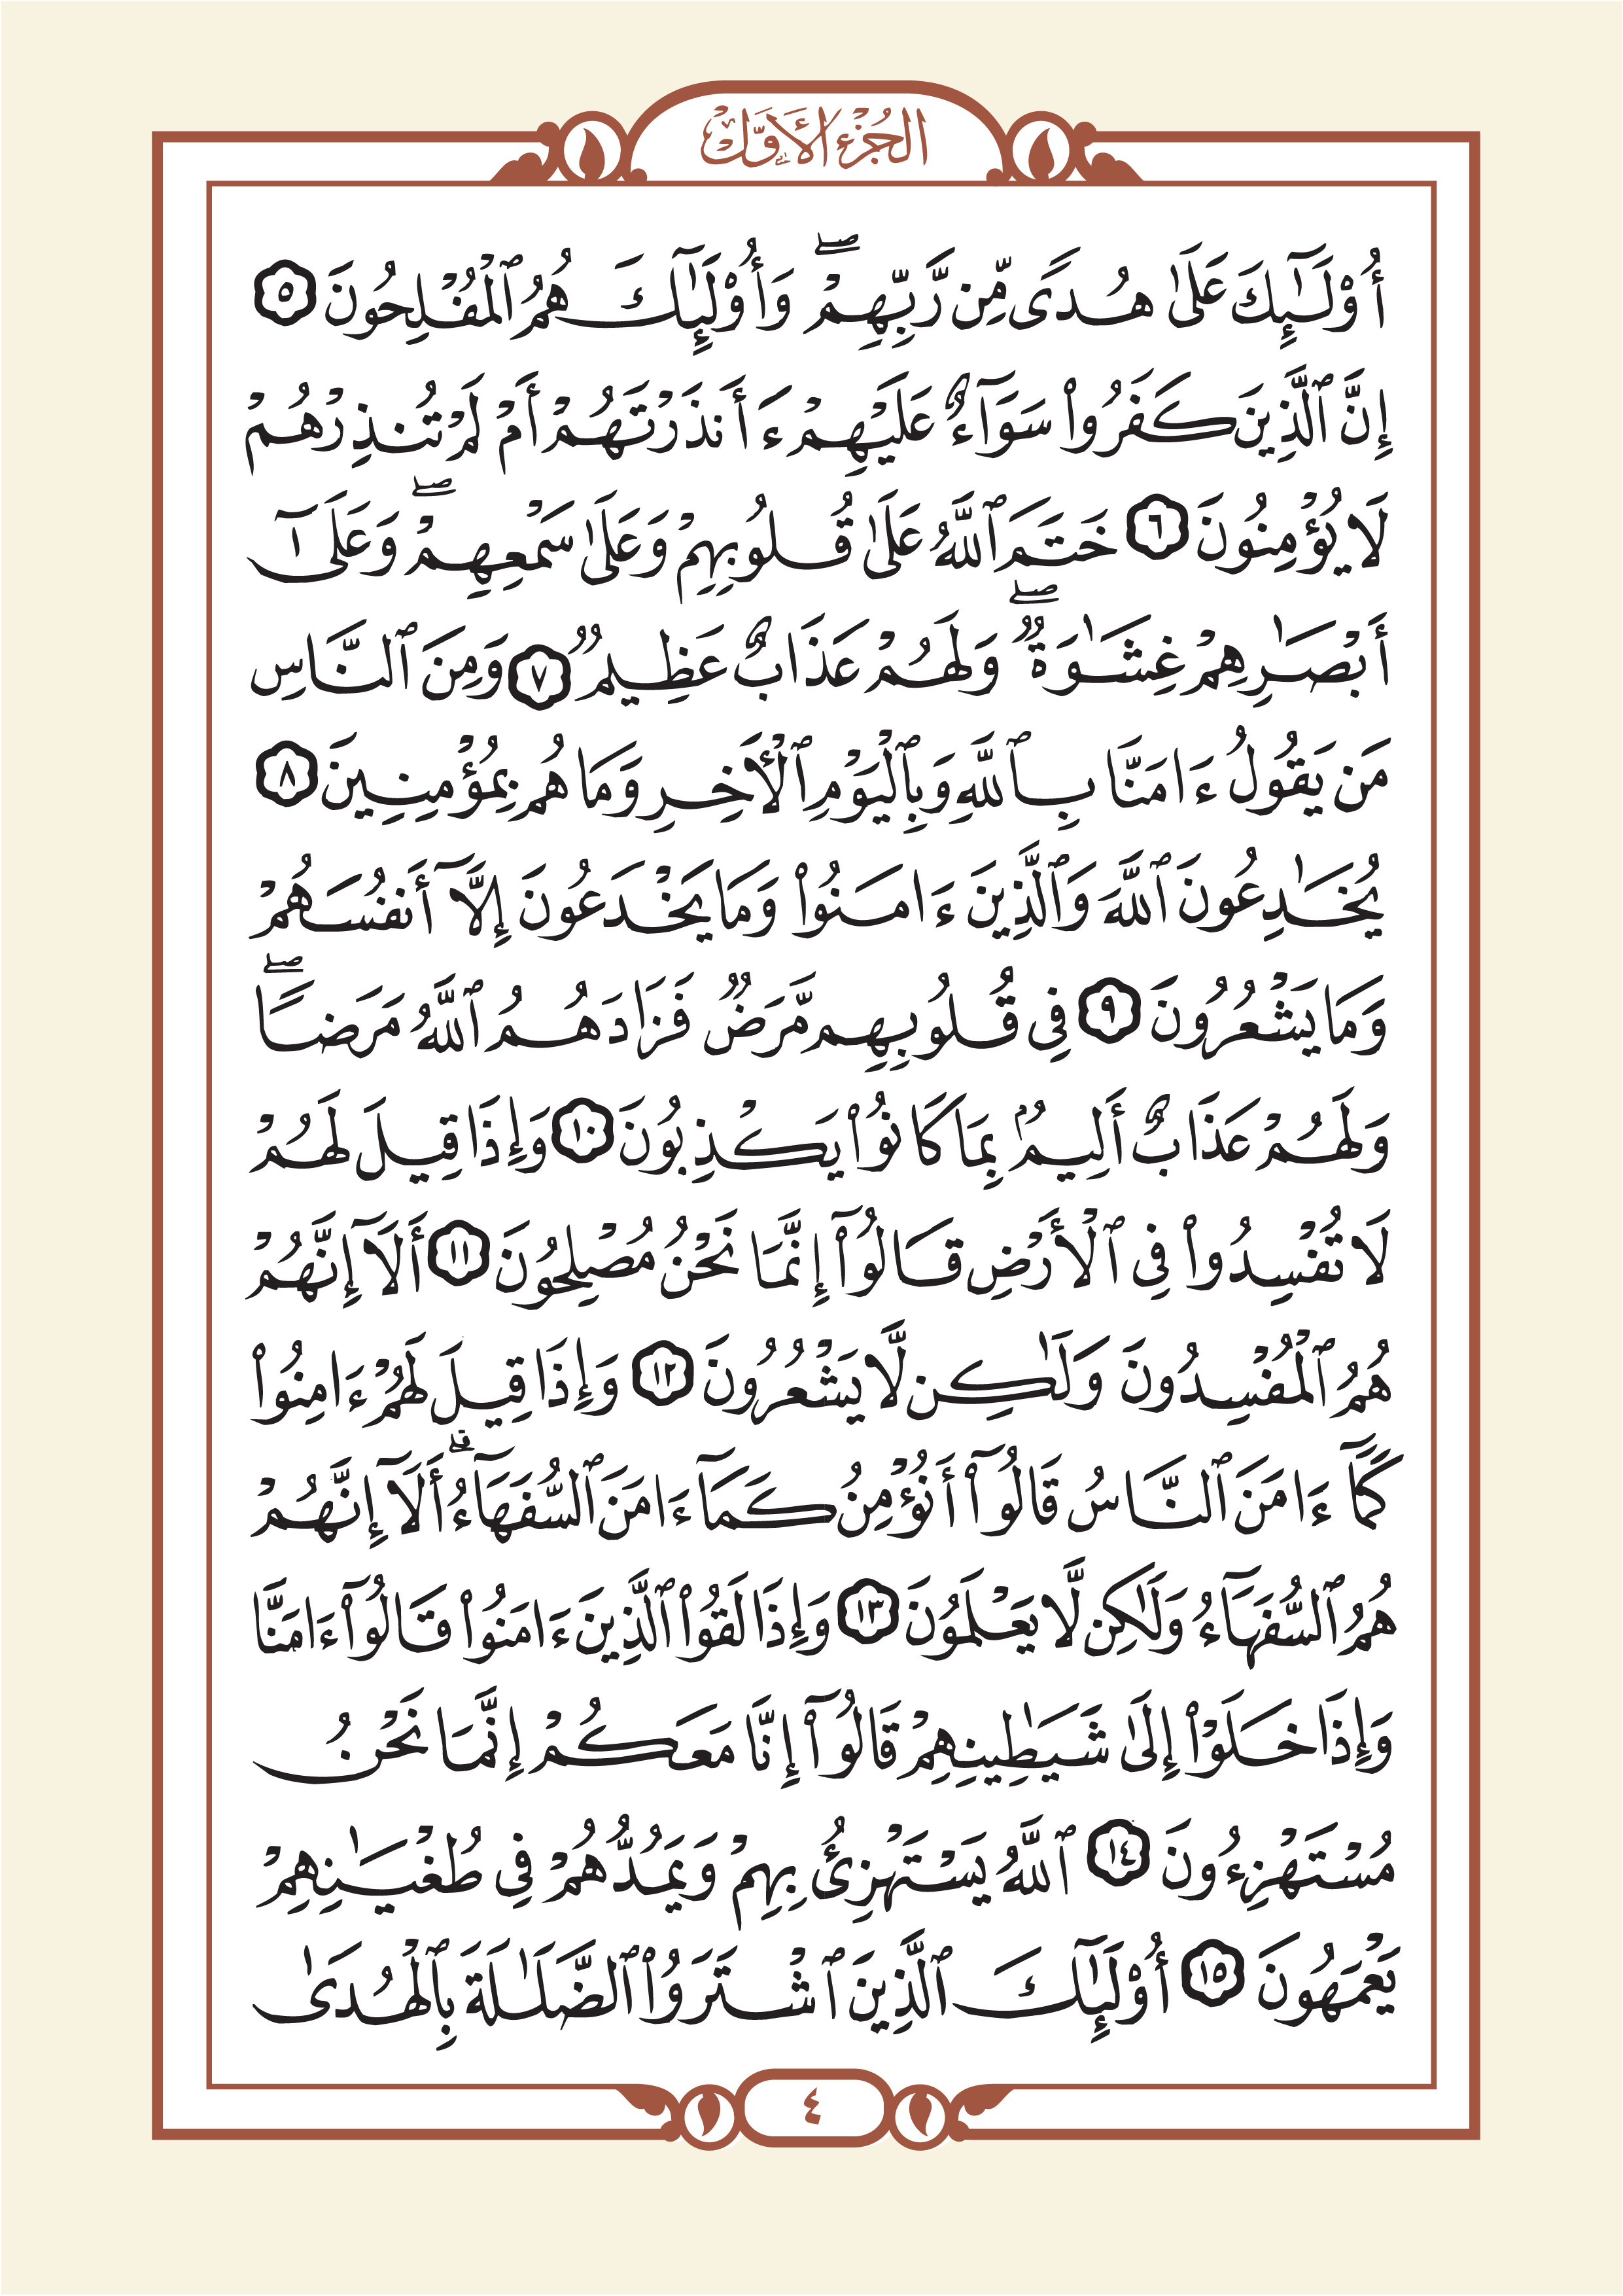 الجزء الأول
أُوْلَٰٓئِكَ عَلَىٰ هُدًى مِّن رَّبِّهِمْۖ وَأُوْلَٰٓئِكَ هُمُ ٱلْمُفْلِحُونَ ٥
إِنَّ ٱلَّذِينَ كَفَرُوا۟ سَوَآءٌ عَلَيْهِمْ ءَأَنذَرْتَهُمْ أَمْ لَمْ تُنذِرْهُمْ
لَا يُؤْمِنُونَ ٦ خَتَمَ ٱللَّهُ عَلَىٰ قُلُوبِهِمْ وَعَلَىٰ سَمْعِهِمْۖ وَعَلَىٰٓ
أَبْصَٰرِهِمْ غِشَٰوَةٌۖ وَلَهُمْ عَذَابٌ عَظِيمٌ ٧ وَمِنَ ٱلنَّاسِ
مَن يَقُولُ ءَامَنَّا بِٱللَّهِ وَبِٱلْيَوْمِ ٱلْأَخِرِ وَمَا هُم بِمُؤْمِنِينَ ٨
يُخَٰدِعُونَ ٱللَّهَ وَٱلَّذِينَ ءَامَنُوا۟ وَمَا يَخْدَعُونَ إِلَّآ أَنفُسَهُمْ
وَمَا يَشْعُرُونَ ٩ فِى قُلُوبِهِم مَّرَضٌ فَزَادَهُمُ ٱللَّهُ مَرَضًاۖ
وَلَهُمْ عَذَابٌ أَلِيمٌۢ بِمَا كَانُوا۟ يَكْذِبُونَ ١٠ وَإِذَا قِيلَ لَهُمْ
لَا تُفْسِدُوا۟ فِى ٱلْأَرْضِ قَالُوٓا۟ إِنَّمَا نَحْنُ مُصْلِحُونَ ١١ أَلَآ إِنَّهُمْ
هُمُ ٱلْمُفْسِدُونَ وَلَٰكِن لَّا يَشْعُرُونَ ١٢ وَإِذَا قِيلَ لَهُمْ ءَامِنُوا۟
كَمَآ ءَامَنَ ٱلنَّاسُ قَالُوٓا۟ أَنُؤْمِنُ كَمَآ ءَامَنَ ٱلسُّفَهَآءُۗ أَلَآ إِنَّهُمْ
هُمُ ٱلسُّفَهَآءُ وَلَٰكِن لَّا يَعْلَمُونَ ١٣ وَإِذَا لَقُوا۟ ٱلَّذِينَ ءَامَنُوا۟ قَالُوٓا۟ ءَامَنَّا
وَإِذَا خَلَوْا۟ إِلَىٰ شَيَٰطِينِهِمْ قَالُوٓا۟ إِنَّا مَعَكُمْ إِنَّمَا نَحْنُ
مُسْتَهْزِءُونَ ١٤ ٱللَّهُ يَسْتَهْزِئُ بِهِمْ وَيَمُدُّهُمْ فِى طُغْيَٰنِهِمْ
يَعْمَهُونَ ١٥ أُوْلَٰٓئِكَ ٱلَّذِينَ ٱشْتَرَوُا۟ ٱلضَّلَٰلَةَ بِٱلْهُدَىٰ
٤